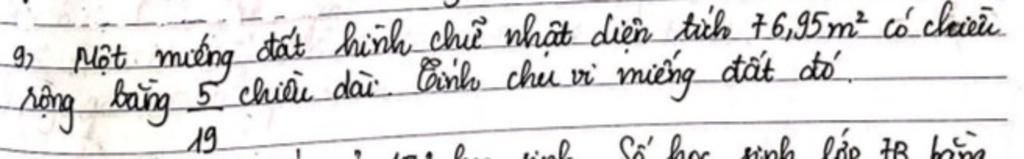 9, Một miếng đất hình chữ nhật diện tích 76,95m² có chiều
rộng bằng 5/19 chiều dài. Tính chu vi miếng đất đó.
Số học sinh lớp 7B bằng